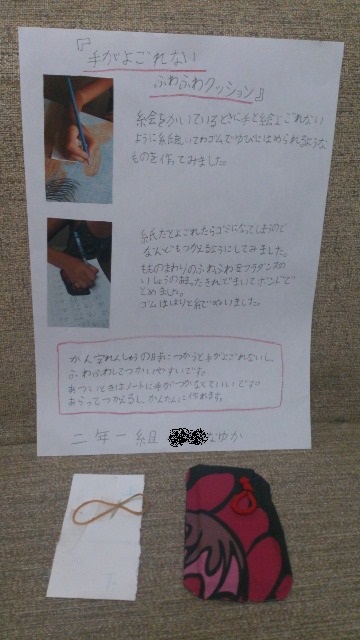 『手がよごれない
ふわふわクッション』
絵をかいているときに手と絵がよごれない
ように紙をわゴムでゆびにはめられるような
ものを作ってみました。
紙だとよごれたらゴミになってしまうので
なんどもつかえるようにしてみました。
もものまわりのふわふわをフラダンスの
いしょうのあまったきれでまいてボンドで
とめました。
ゴムははりと糸でぬいました。
かん字れんしゅうの時につかうと手がよごれないし、
ふわふわしてつかいやすいです。
あついときはノートに手がつかなくていいです。
あらってつかえるし、かんたんに作れます。
二年一組 なゆか